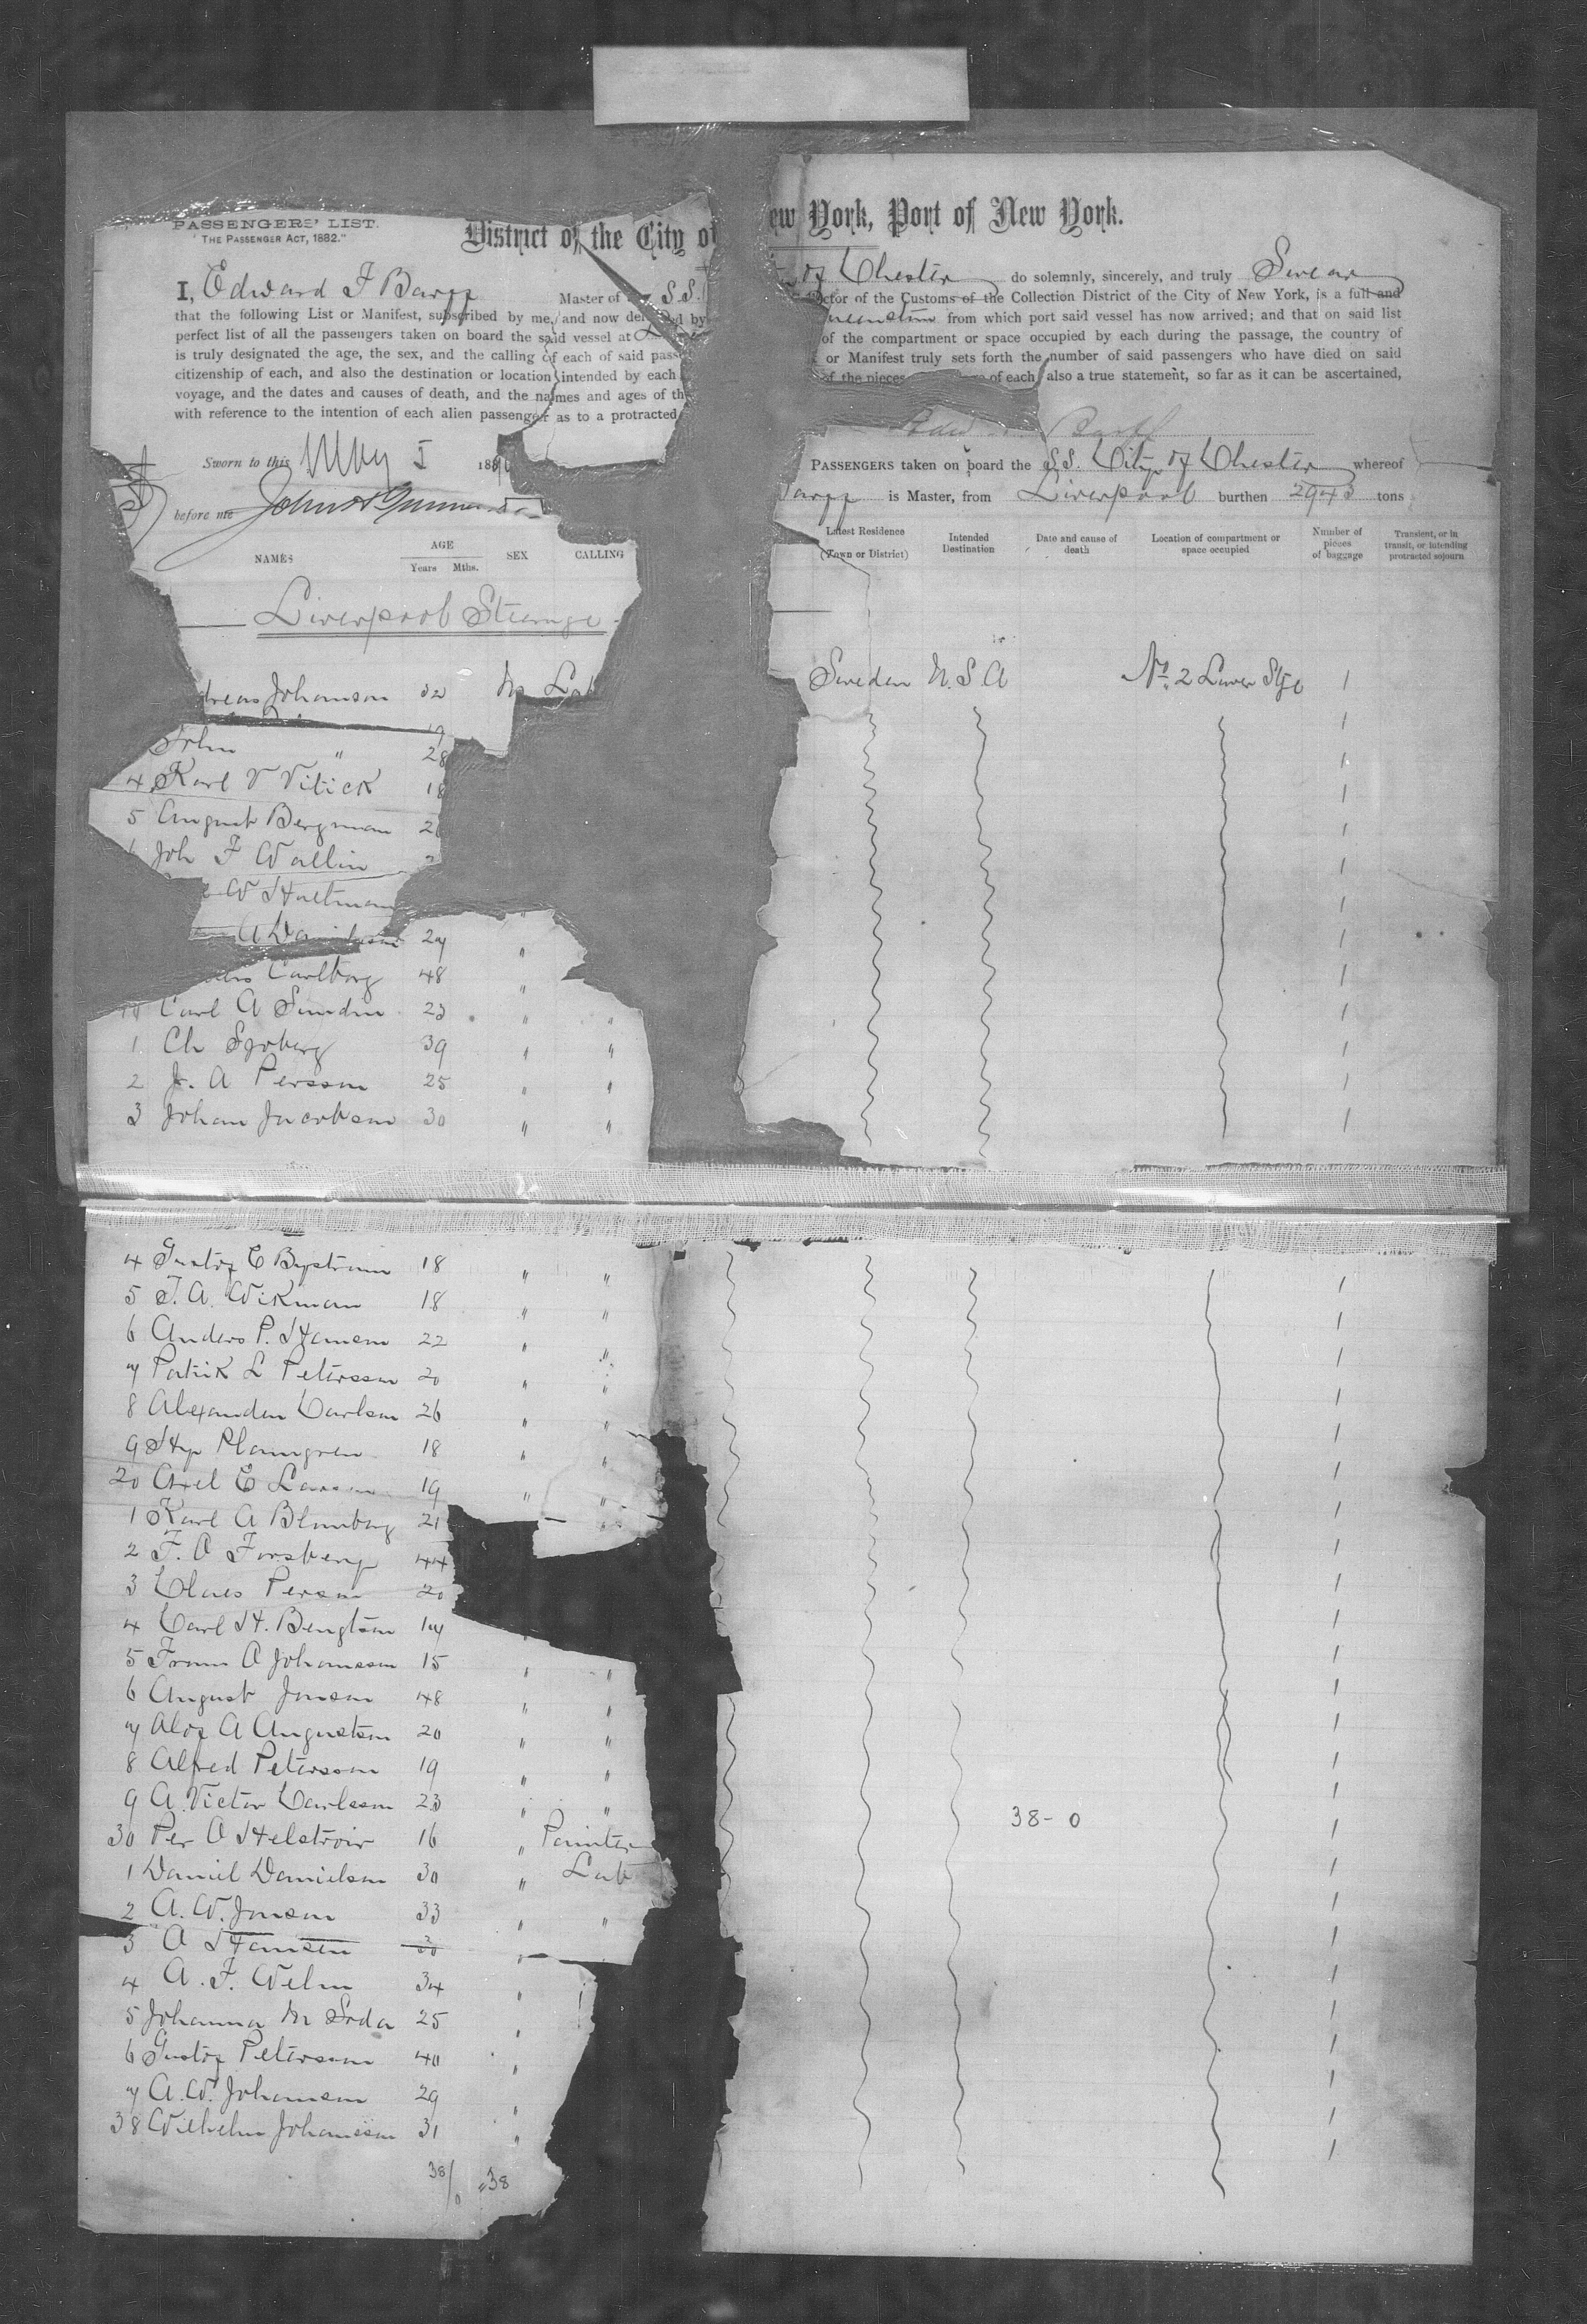 PASSENGERS' LIST.
"THE PASSENGER ACT, 1882."
District of the City of ew York, Port of New York.
I, Edward F Barff Master of S.S. of Chester do solemnly, sincerely, and truly Swear
that the following List or Manifest, subscribed by me, and now by ctor of the Customs of the Collection District of the City of New York, is a full and
perfect list of all the passengers taken on board the said vessel at from which port said vessel has now arrived; and that on said list
is truly designated the age, the sex, and the calling of each of said of the compartment or space occupied by each during the passage, the country of
citizenship of each, and also the destination or location intended by each or Manifest truly sets forth the number of said passengers who have died on said
voyage, and the dates and causes of death, and the names and ages of of the pieces of each also a true statement, so far as it can be ascertained,
with reference to the intention of each alien passenger as to a protracted
Barff
Sworn to this May 5 PASSENGERS taken on board the S.S. City of Chester whereof
before me John is Master, from Liverpool burthen 2943 tons
NAMES AGE Years Mths. SEX CALLING Latest Residence (Town or District) Intended Destination Date and cause of death Location of compartment or space occupied Number of pieces of baggage Transient, or in transit, or intending protracted sojourn
Liverpool Steerage
Johanson 32 M Lab Sweden U.S.A No. 2 Lower Stge 1
John " 28
4 Karl V Vitick 18
5 August Bergman
Joh F Wallin
W Hultman
A 27 "
Carlborg 48 "
10 Carl A Sundin 23 " "
1 Ch Sjoberg 39 " "
2 J. A Persson 25 " "
3 Johan Jacobson 30 " "
4 Gustof E Bystrom 18 " "
5 J. A. Wikman 18 " "
6 Anders P. Hanson 22 " "
7 Patrik L Petersson 20 " "
8 Alexander Carlson 26 " "
9 Hj Planngren 18 " "
20 Axel E Larson 19 " "
1 Karl A Blomberg 21 "
2 F. O Forsberg 44
3 Claes Person 20
4 Carl H. Bengtson 19
5 Frans A Johansson 15 " "
6 August Jonson 48 " "
7 Alof A Augustson 20 " "
8 Alfred Petersson 19 " "
9 A. Victor Carlsson 23 " " 38-0
30 Per O Helstrom 16 " Painter
1 Daniel Danielson 30 " Lab
2 A. W. Jonson 33 " "
3 A Hansen 30 "
4 A. F. Welin 34 "
5 Johanna M Soda 25 "
6 Gustof Peterson 40 "
7 A. W. Johanson 29 "
38 Wilhelm Johansson 31 "
38/0 38